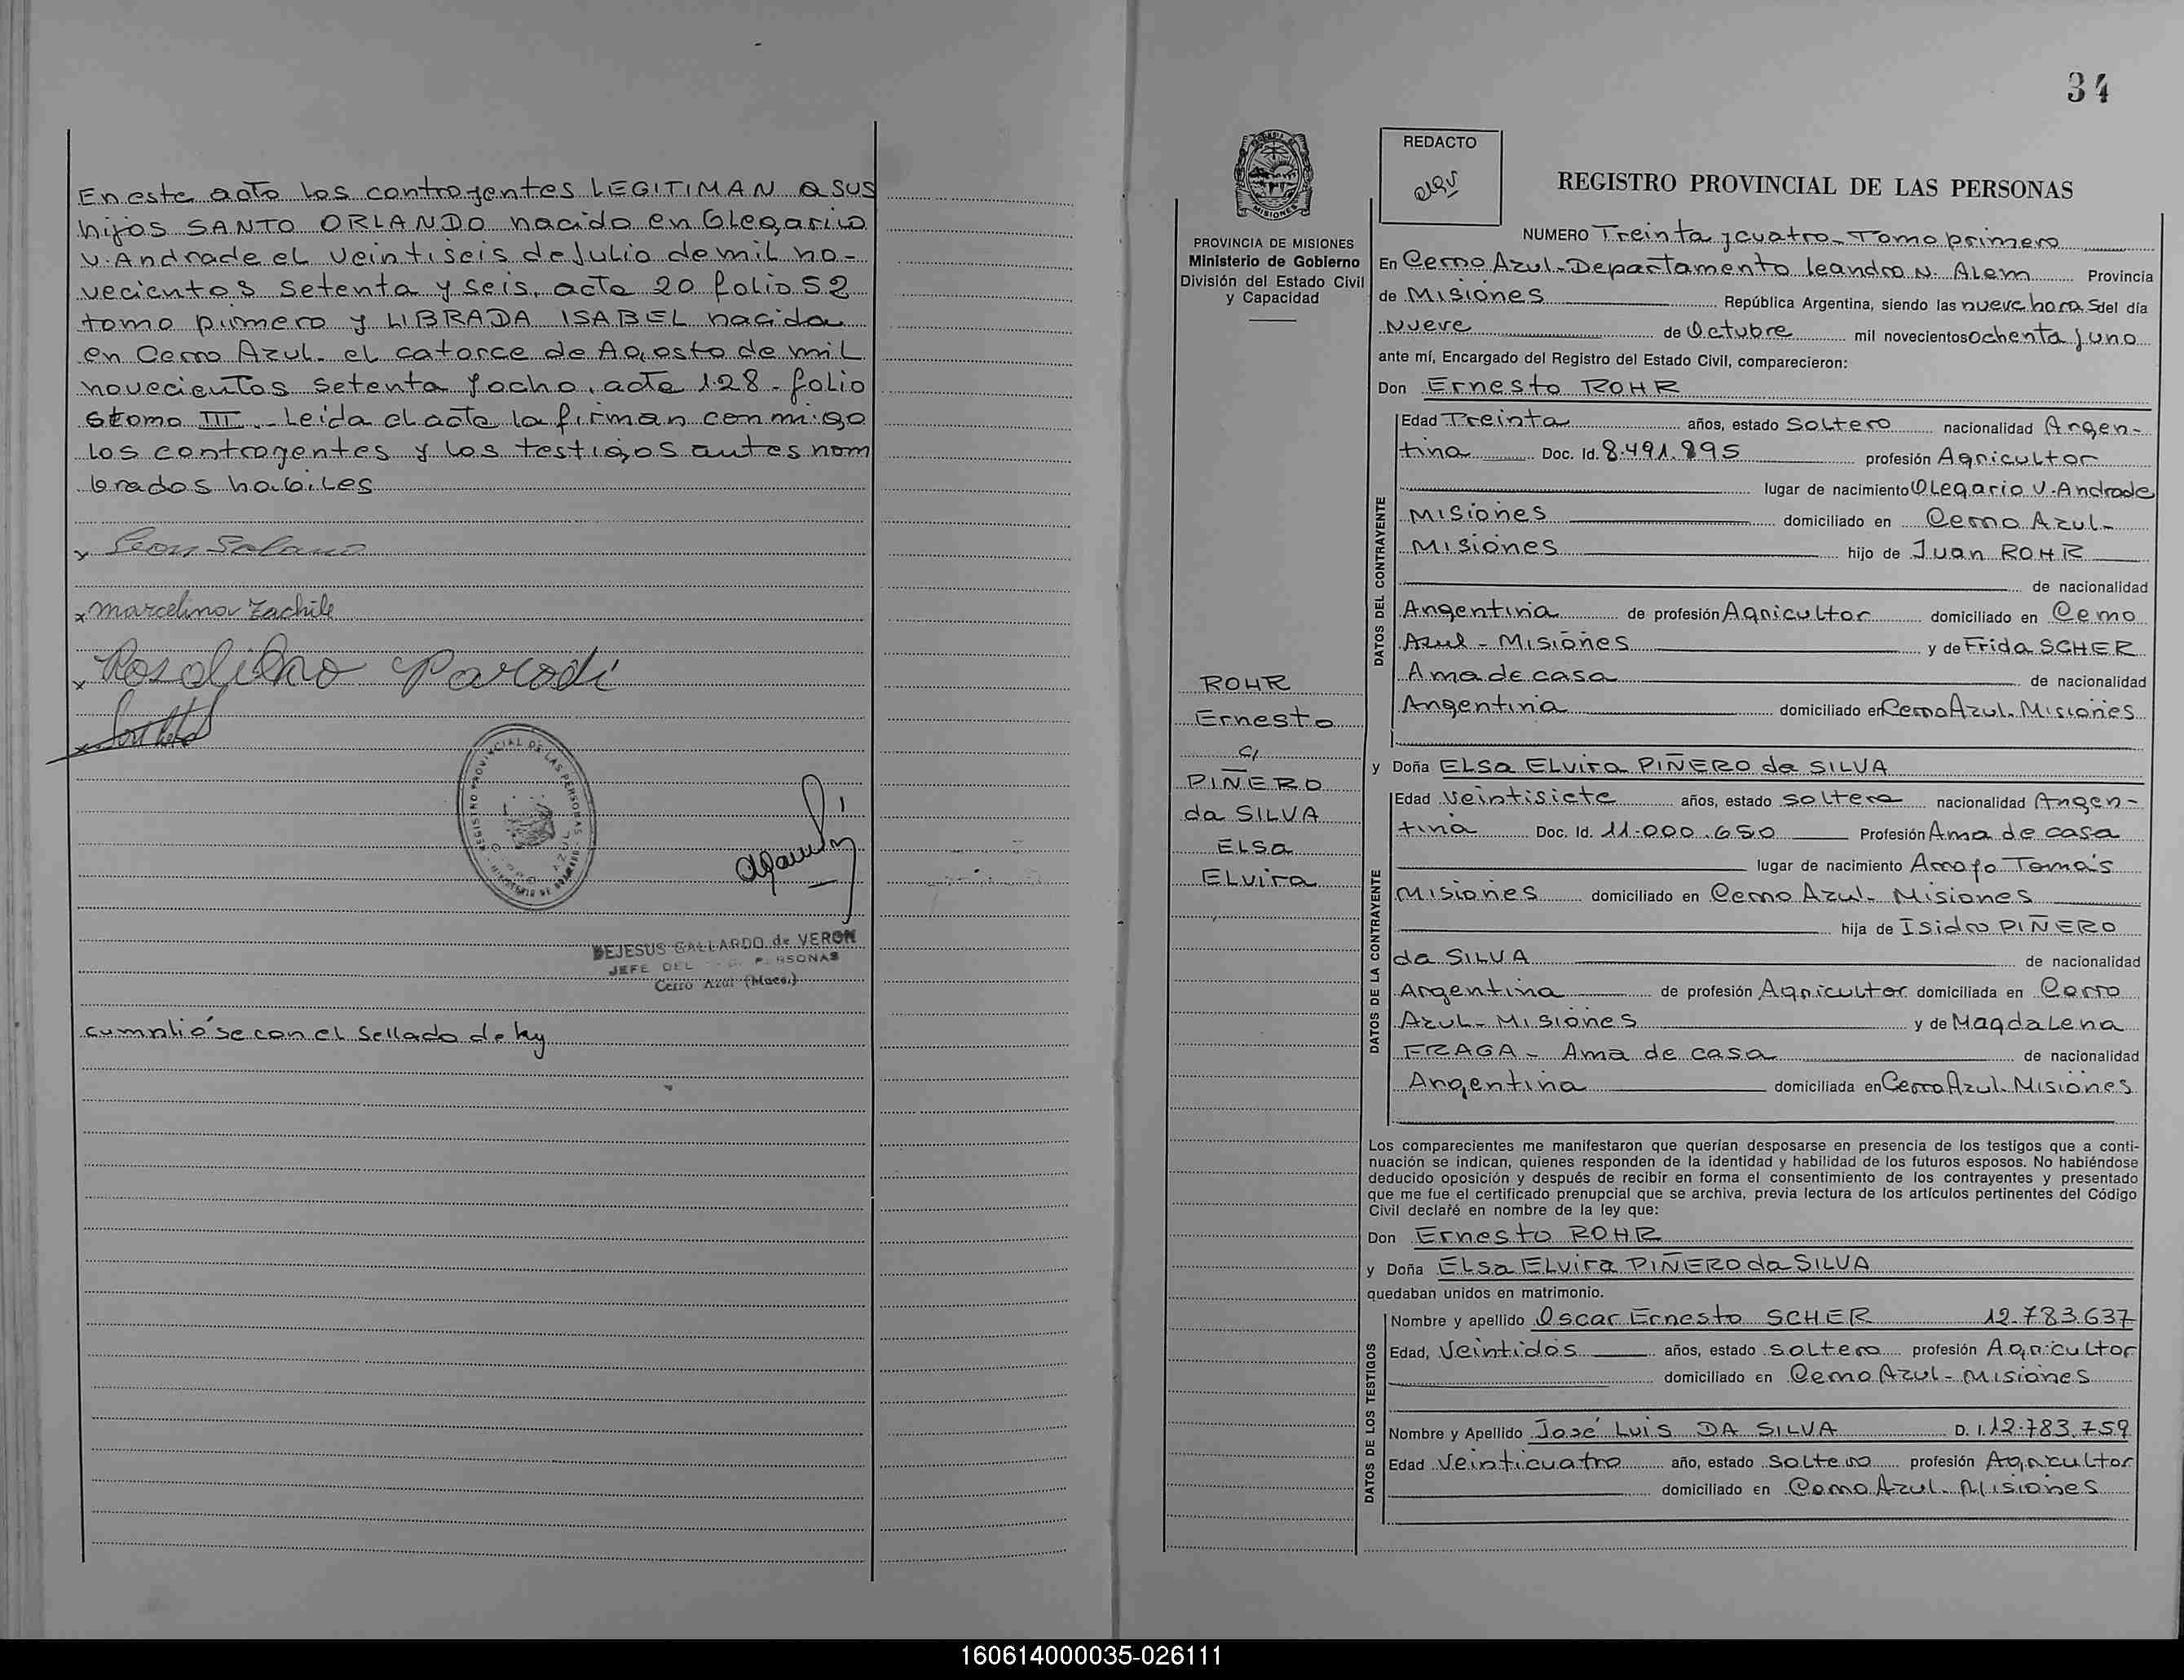 En este acto los contrayentes LEGITIMAN a sus
hijos SANTO ORLANDO nacido en Olegario
V. Andrade el veintiseis de Julio de mil no-
vecientos setenta y seis, acta 20 folio 52
tomo primero y LIBRADA ISABEL nacida
en Cerro Azul- el catorce de Agosto de mil
novecientos setenta y ocho, acta 128- folio
6 tomo III.- Leida el acta la firman conmigo
los contrayentes y los testigos antes nom
brados habiles
x Leon Solano
x marcelina Zachile
x Rosalino Parodi
REGISTRO PROVINCIAL DE LAS PERSONAS
DEJESUS GALLARDO de VERON
JEFE DEL PERSONAS
Cerro Azul (Mnes.)
cumplió se con el sellado de ley
34
REDACTO
REGISTRO PROVINCIAL DE LAS PERSONAS
PROVINCIA DE MISIONES
Ministerio de Gobierno
División del Estado Civil
y Capacidad
NUMERO Treinta y cuatro- Tomo primero
En Cerro Azul- Departamento Leandro N. Alem Provincia
de Misiones República Argentina, siendo las nueve horas del día
Nueve de Octubre mil novecientos ochenta y uno
ante mí, Encargado del Registro del Estado Civil, comparecieron:
Don Ernesto ROHR
DATOS DEL CONTRAYENTE
Edad Treinta años, estado Soltero nacionalidad Argen-
tina Doc. Id. 8.491.895 profesión Agricultor
lugar de nacimiento Olegario V. Andrade
Misiones domiciliado en Cerro Azul-
Misiones hijo de Juan ROHR
de nacionalidad
Argentina de profesión Agricultor domiciliado en Cerro
Azul - Misiones y de Frida SCHER
Ama de casa de nacionalidad
Argentina domiciliado en Cerro Azul. Misiones
ROHR
Ernesto
c/
PIÑERO
da SILVA
ELSa
ELvira
y Doña ELSa ELvira PIÑERO da SILVA
DATOS DE LA CONTRAYENTE
Edad veintisiete años, estado soltera nacionalidad Argen-
tina Doc. Id. 11.000.650 Profesión Ama de casa
lugar de nacimiento Arroyo Tomás
Misiones domiciliado en Cerro Azul- Misiones
hija de Isidro PIÑERO
da SILVA de nacionalidad
Argentina de profesión Agricultor domiciliada en Cerro
Azul- Misiones y de Magdalena
FRAGA - Ama de casa de nacionalidad
Argentina domiciliada en Cerro Azul- Misiones
Los comparecientes me manifestaron que querían desposarse en presencia de los testigos que a conti-
nuación se indican, quienes responden de la identidad y habilidad de los futuros esposos. No habiéndose
deducido oposición y después de recibir en forma el consentimiento de los contrayentes y presentado
que me fue el certificado prenupcial que se archiva, previa lectura de los artículos pertinentes del Código
Civil declaré en nombre de la ley que:
Don Ernesto ROHR
y Doña ELSa ELvira PIÑERO da SILVA
quedaban unidos en matrimonio.
DATOS DE LOS TESTIGOS
Nombre y apellido Oscar Ernesto SCHER 12.783.637
Edad, Veintidos años, estado soltero profesión Agricultor
domiciliado en Cerro Azul- Misiones
Nombre y Apellido José Luis DA SILVA D. I. 12.783.759
Edad Veinticuatro año, estado soltero profesión Agricultor
domiciliado en Cerro Azul- Misiones
160614000035-026111